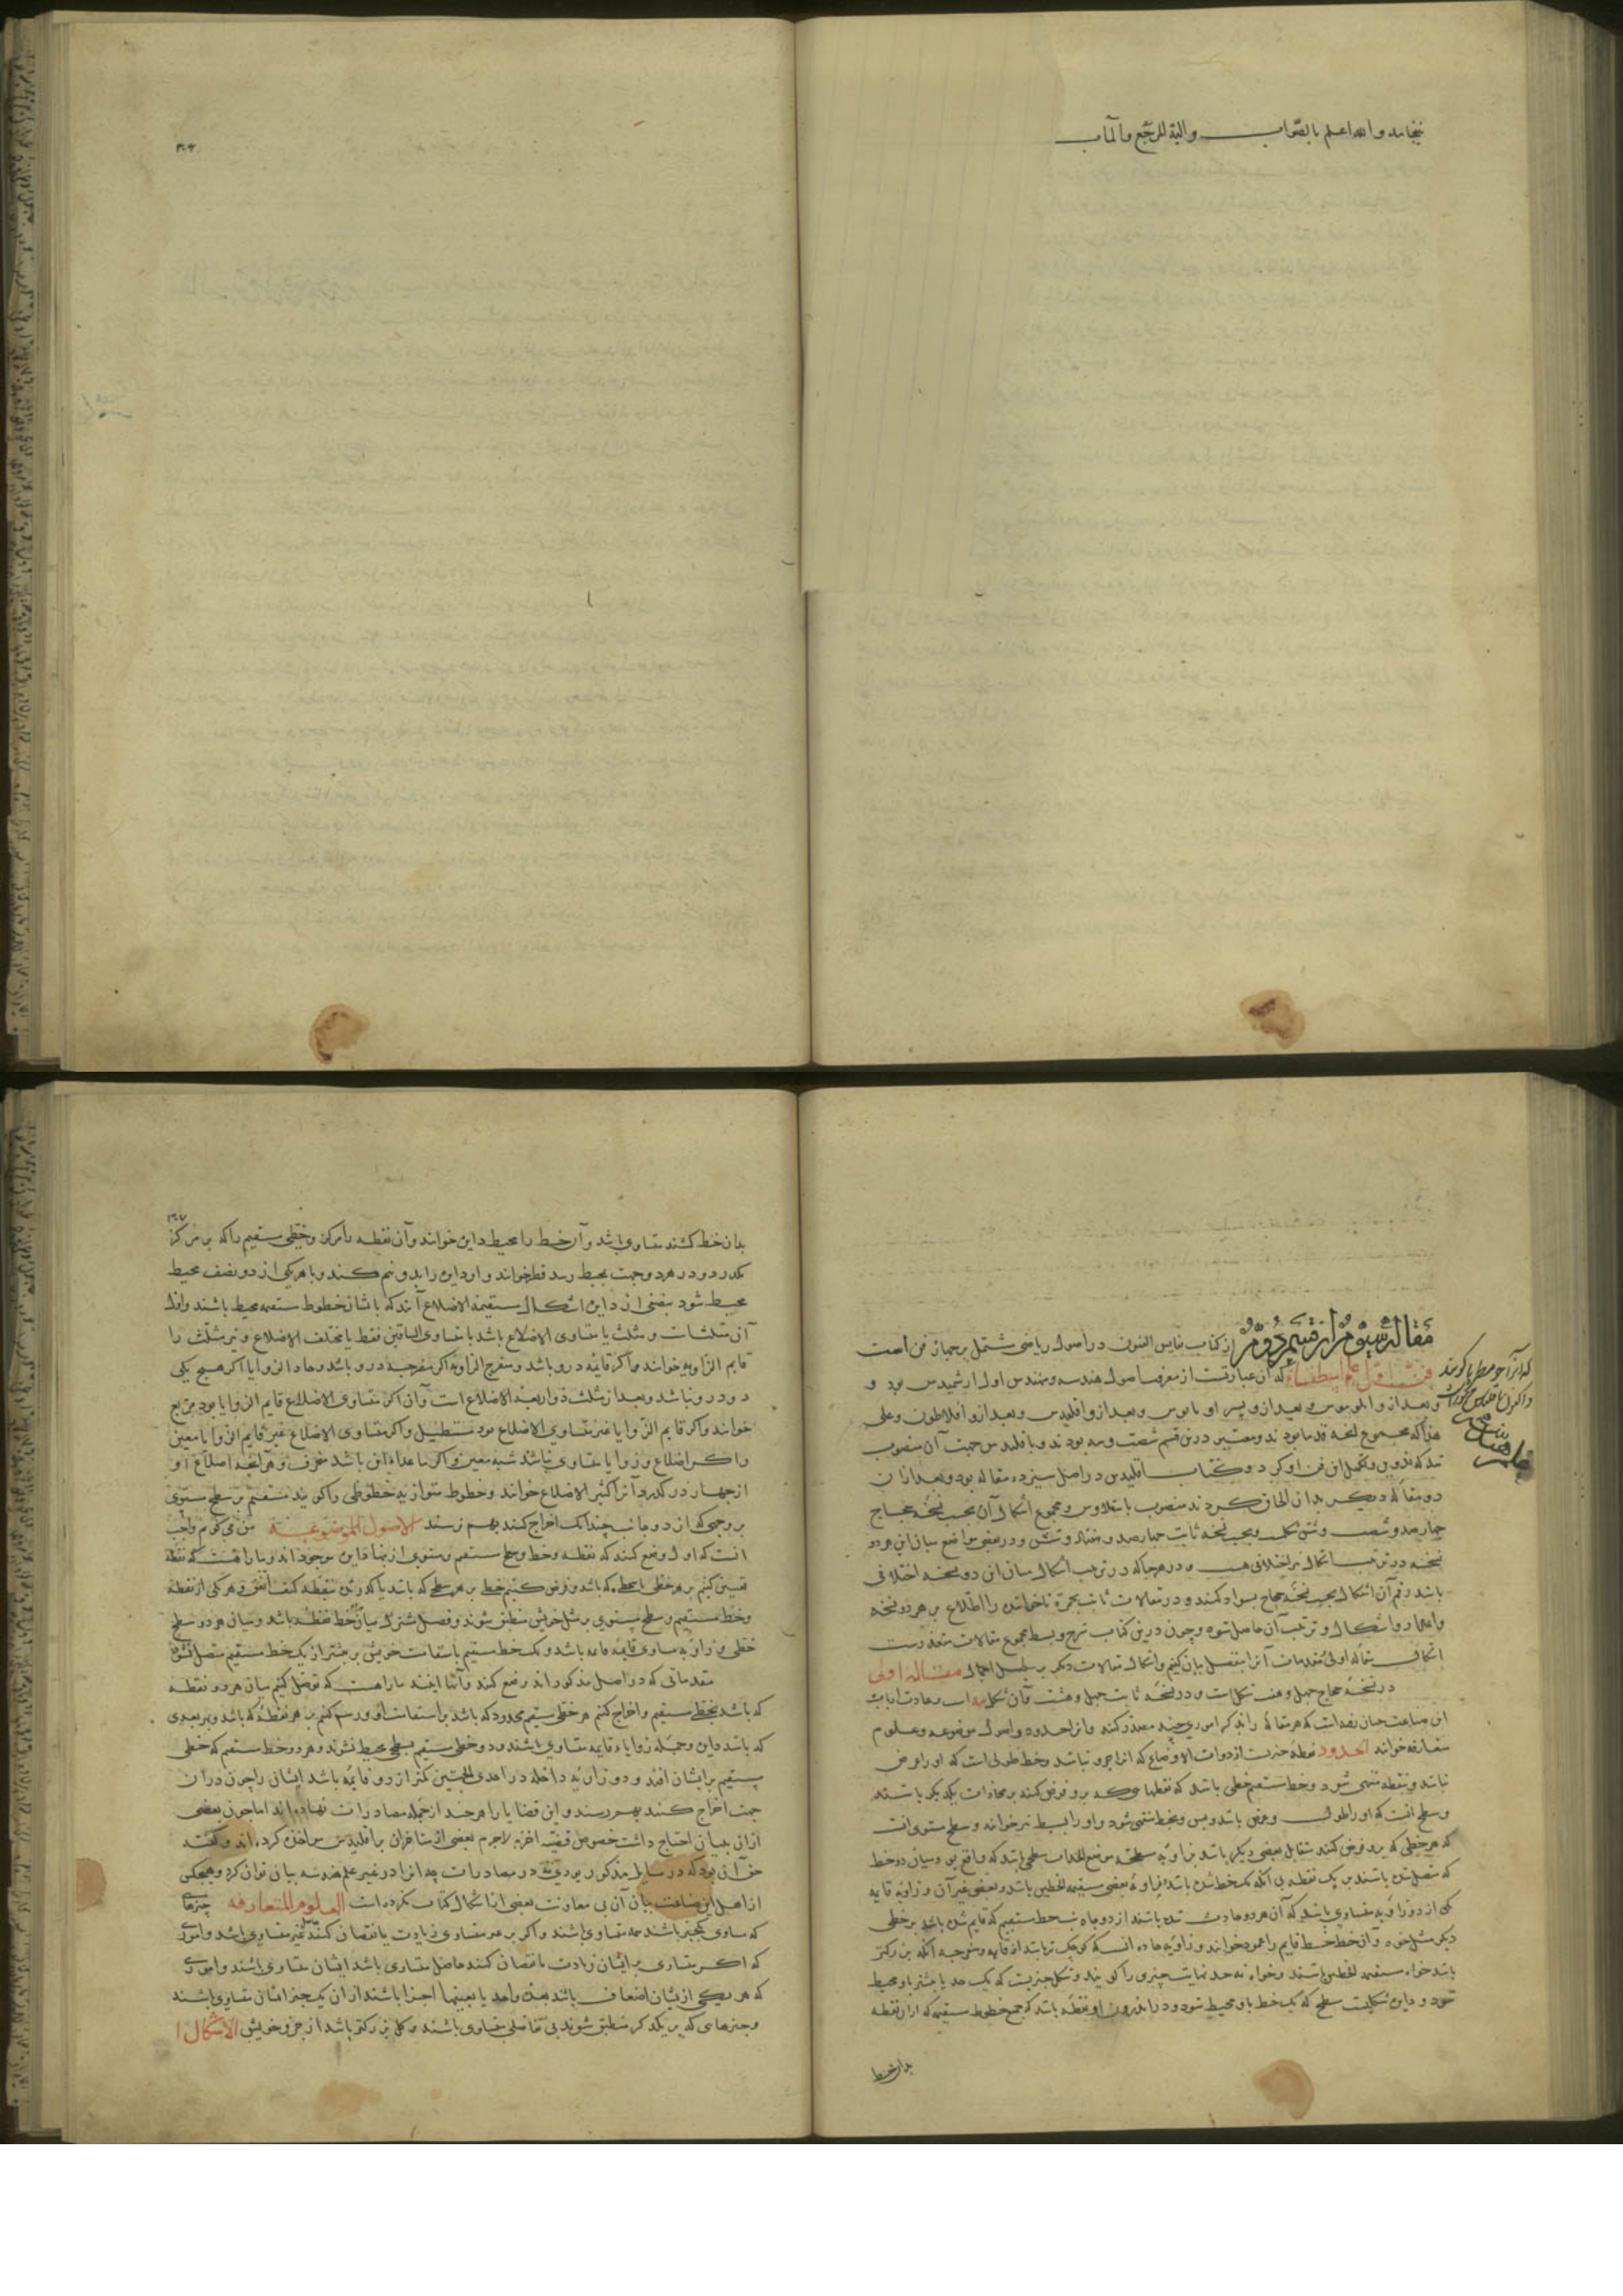 نینجامد و الله اعلم بالصّواب والیه المرجع والمآب
۳۰۶
مقالهٔ سوّم از قسم دوّم از کتاب نفایس الفنون در اصول ریاضی مشتمل بر چهار فن است
فن اوّل علم اسطقسات که آن عبارتست از معرفت اصول هندسه و مهندس اول ارشمیدس بود و
که آنرا جومطریا گویند
و بعد ازو ابلونیوس و بعد ازو پسر او و بعد ازو اقلیدس و بعد ازو افلاطون و علی
هذا که مجموع قدما بودند و معتبر درین قسم شصت و سه بودند و با اقلیدس جهت آن منصوب
شد که تدوین و تکمیل این فن او کرد و کتاب اقلیدس در اصل سیزده مقاله بود و بعد از آن
دو مقاله دیگر بدان الحاق کردند منصوب باسقلاوس و مجموع اشکال آن بحسب نسخهٔ حجاج
چهارصد و شصت و شش شکل و بحسب نسخه ثابت چهارصد و هفتاد و شش و در بعضی مواضع میان این هر دو
نسخه در ترتیب اشکال نیز اختلافی هست و در هر جا که در ترتیب اشکال میان این دو نسخه اختلافی
باشد رقم آن اشکال بحسب نسخهٔ حجاج بسواد کنند و در مقالات ثابت بحمرة تا خواننده را اطلاع بر هر دو نسخه
و اعداد و اشکال و ترتیب آن حاصل شود و چون درین کتاب شرح و بسط مجموع مقالات متعذرست
اشکال مقالهٔ اولی و مقدمات آنرا مفصل بیان کنیم و اشکال مقالات دیگر بر سبیل اجمال مقاله اولی
در نسخهٔ حجاج چهل و هفت شکل است و در نسخهٔ ثابت چهل و هشت و عادت ارباب
این صناعت چنان رفته است که هر مقاله را بذکر اموری چند مصدّر کنند و آنرا حدود و اصول موضوعه و علوم
متعارفه خوانند الحدود نقطه چیزیست از ذوات الاوضاع که آنرا جزو نباشد و خط طولی است که او را عرض
نباشد و بنقطه منتهی شود و خط مستقیم خطی باشد که نقطها که برو فرض کنند بر محاذات یکدیگر باشند
و سطح آنست که او را طول و عرض باشد و بس و بخط منتهی شود و او را بسیط نیز خوانند و سطح مستوی آنست
که هر خطی که برو فرض کنند مقابل بعضی دیگر باشد و زاویه مسطحه موضع انحداب سطحی باشد که واقع بود میان دو خط
که متصل شده باشند بر یک نقطه بی آنکه یک خط شده باشد و زاویهٔ بعضی مستقیمة الخطین باشد و بعضی غیر آن و زاویه قایمه
یکی از دو زاویه متساوی باشد که آن هر دو حادث شده باشند از دو جانب خط مستقیم که قایم شده باشد بر خطی
دیگر مثل خود و آن خط قایم را عمود خوانند و زاویهٔ حاده آنست که کوچکتر باشد از قایمه و منفرجه آنکه بزرگتر
باشد خواه مستقیمة الخطین باشند و خواه نه حد نهایت چیزی را گویند و شکل چیزیست که یک حد یا بیشتر باو محیط
شود و دایره شکلیست سطحی که یک خط باو محیط شود و در اندرون او نقطه باشد که جمیع خطوط مستقیم که از آن نقطه
بدان خط
۳۰۷
بدان خط کشند متساوی باشد و آن خط را محیط دایره خوانند و آن نقطه را مرکز و خطی مستقیم را که بر مرکز
بگذرد و در هر دو جهت بمحیط رسد قطر خوانند و او دایره را بدو نیم کند و با هر یکی از دو نصف محیط
محیط شود بنصفی از دایره اشکال مستقیمة الاضلاع آنند که باشان خطوط مستقیمه محیط باشند و اول
آن مثلثات و مثلث یا متساوی الاضلاع باشد یا متساوی الساقین فقط یا مختلف الاضلاع و نیز مثلث را
قایم الزاویه خوانند و اگر قائمه درو باشد و منفرج الزاویه اگر منفرجه درو باشد و حاد الزوایا اگر هیچ یکی
درو نباشد و بعد از مثلث ذو اربعة الاضلاع است و آن اگر متساوی الاضلاع قایم الزوایا بود مربع
خوانند و اگر قایم الزوایا غیر متساوی الاضلاع بود مستطیل و اگر متساوی الاضلاع غیر قایم الزوایا معین
و اگر اضلاع و زوایا متساوی نباشد شبه معین و اگر ماعدا این باشد منحرف و هر آنچه اضلاع او
از چهار درگذرد آنرا کثیر الاضلاع خوانند و خطوط متوازیه خطوطی را گویند مستقیم بر سطح مستوی
بر وجهی که از دو جانب چندانک اخراج کنند بهم نرسند الاصول الموضوعة من می‌گویم واجب
آنست که اول وضع کنند که نقطه و خط و سطح مستقیم و مستوی از اینها دایره موجوداند و ما را هست که نقطه
تعیین کنیم بر هر خطی و سطحی که باشد و فرض کنیم خطی بر هر سطحی که باشد یا گذرنده بنقطه کیف اتفق و هر یکی از نقطه
و خط مستقیم و سطح مستوی بر مثل خویش منطبق شوند و فصل مشترک میان دو خط نقطه باشد و میان هر دو سطح
خطی و زاویه مساوی قایمه قایمه باشد و یک خط مستقیم باستقامت خویش بر بیشتر از یک خط مستقیم متصل نشود
مقدماتی که در اصل مذکوراند وضع کنند و آنها اینند ما را هست که توصل کنیم میان هر دو نقطه
که باشد بخطی مستقیم و اخراج کنیم هر خطی مستقیم محدود که باشد بر استقامت او و رسم کنیم بر هر نقطهٔ که باشد و بهر بعدی
که باشد دایره و جمله زوایاء قایمه متساوی باشند و دو خطی مستقیم بسطحی محیط نشوند و هر دو خط مستقیم که خطی
مستقیم بر ایشان افتد و دو زاویهٔ داخله در احدی الجهتین کمتر از دو قایمه باشد ایشان را چون در آن
جهت اخراج کنند بهم رسند و این قضایا را هر چند از جمله مصادرات نهاده‌اند اما چون بعضی
از آن بیان احتیاج داشت خصوص قضیه اخیره لاجرم بعضی از متاخران بر اقلیدس مواخذه کرده‌اند و گفته
حق آن بود که در مسایل مذکور بودی نه در مصادرات چه آنرا در غیر علم هندسه بیان توان کرد و هیچ‌کس
از اهل این صناعت بیان آن بی معاونت بعضی از اشکال کتاب نکرده است العلوم المتعارفه چیزهای
که مساوی یکچیز باشند همه متساوی باشند و اگر بر هر متساوی زیادت یا نقصان کنند غیر متساوی باشد و اموری
که اگر متساوی بر ایشان زیادت یا نقصان کنند حاصل متساوی باشد ایشان متساوی باشند و اموری
که هر یکی از یشان اضعاف باشد بعدد واحد یا بعینها اجزا باشند از آن یکچیز ایشان متساوی باشند
و چیزهای که بر یکدیگر منطبق شوند بی تفاضلی متساوی باشند و کل بزرگتر باشد از جزو خویش الاشکال ا